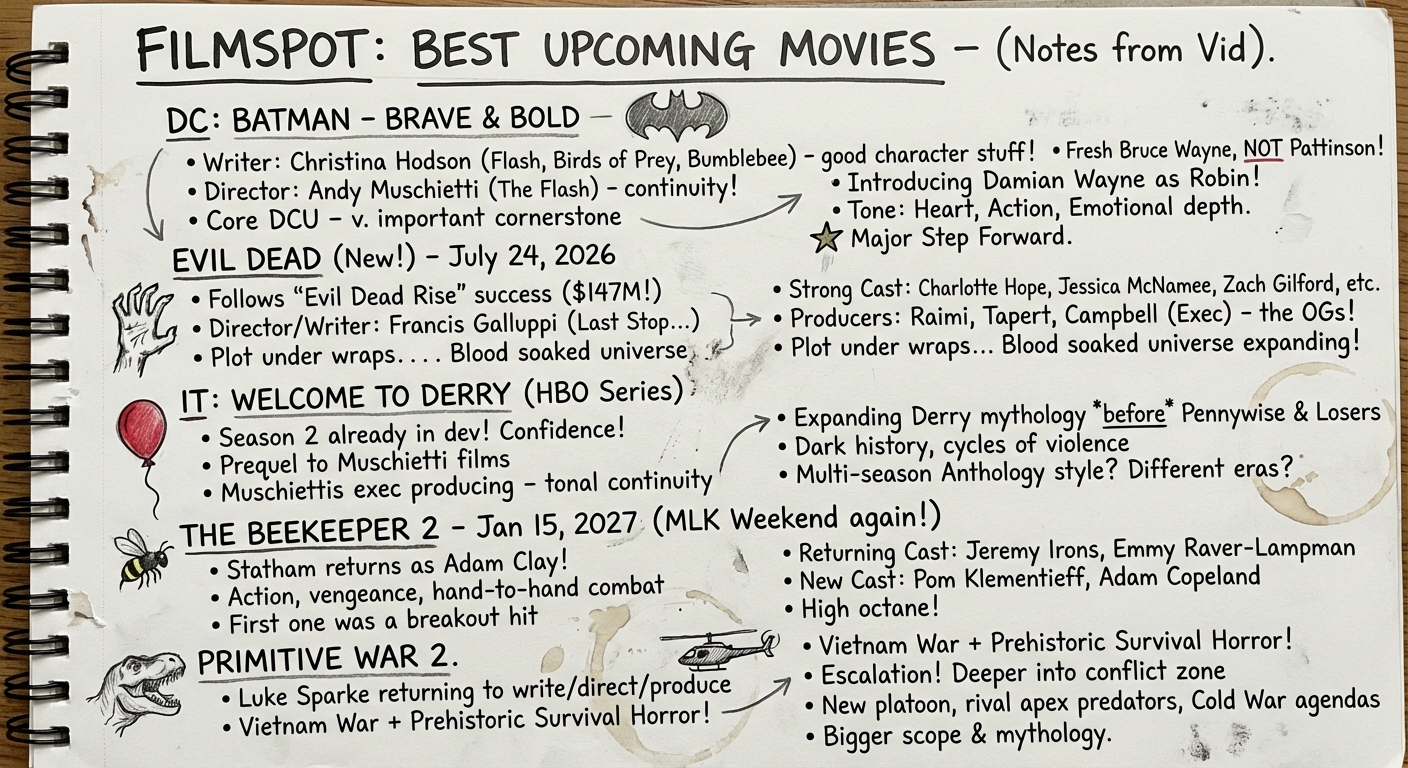 FILMSPOT: BEST UPCOMING MOVIES – (Notes from Vid).
DC: BATMAN – BRAVE & BOLD –
• Writer: Christina Hodson (Flash, Birds of Prey, Bumblebee) – good character stuff!
• Director: Andy Muschietti (The Flash) – continuity!
• Core DCU – v. important cornerstone
• Fresh Bruce Wayne, NOT Pattinson!
• Introducing Damian Wayne as Robin!
• Tone: Heart, Action, Emotional depth.
Major Step Forward.
EVIL DEAD (New!) – July 24, 2026
• Follows "Evil Dead Rise" success ($147M!)
• Director/Writer: Francis Galluppi (Last Stop...)
• Plot under wraps.... Blood soaked universe,
• Strong Cast: Charlotte Hope, Jessica McNamee, Zach Gilford, etc.
• Producers: Raimi, Tapert, Campbell (Exec) – the OGs!
• Plot under wraps... Blood soaked universe expanding!
IT: WELCOME TO DERRY (HBO Series)
• Season 2 already in dev! Confidence!
• Prequel to Muschietti films
• Muschiettis exec producing – tonal continuity
• Expanding Derry mythology *before* Pennywise & Losers
• Dark history, cycles of violence
• Multi-season Anthology style? Different eras?
THE BEEKEEPER 2 – Jan 15, 2027 (MLK Weekend again!)
• Statham returns as Adam Clay!
• Action, vengeance, hand-to-hand combat
• First one was a breakout hit
• Returning Cast: Jeremy Irons, Emmy Raver-Lampman
• New Cast: Pom Klementieff, Adam Copeland
• High octane!
PRIMITIVE WAR 2.
• Luke Sparke returning to write/direct/produce
• Vietnam War + Prehistoric Survival Horror!
• Vietnam War + Prehistoric Survival Horror!
• Escalation! Deeper into conflict zone
• New platoon, rival apex predators, Cold War agendas
• Bigger scope & mythology.